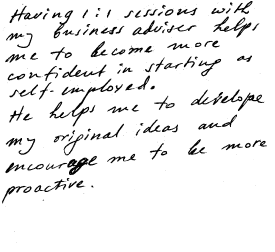 Having 1:1 sessions with
my business adviser helps
me to become more
confident in starting as
self-employed.
He helps me to develope
my original ideas and
encourage me to be more
proactive.